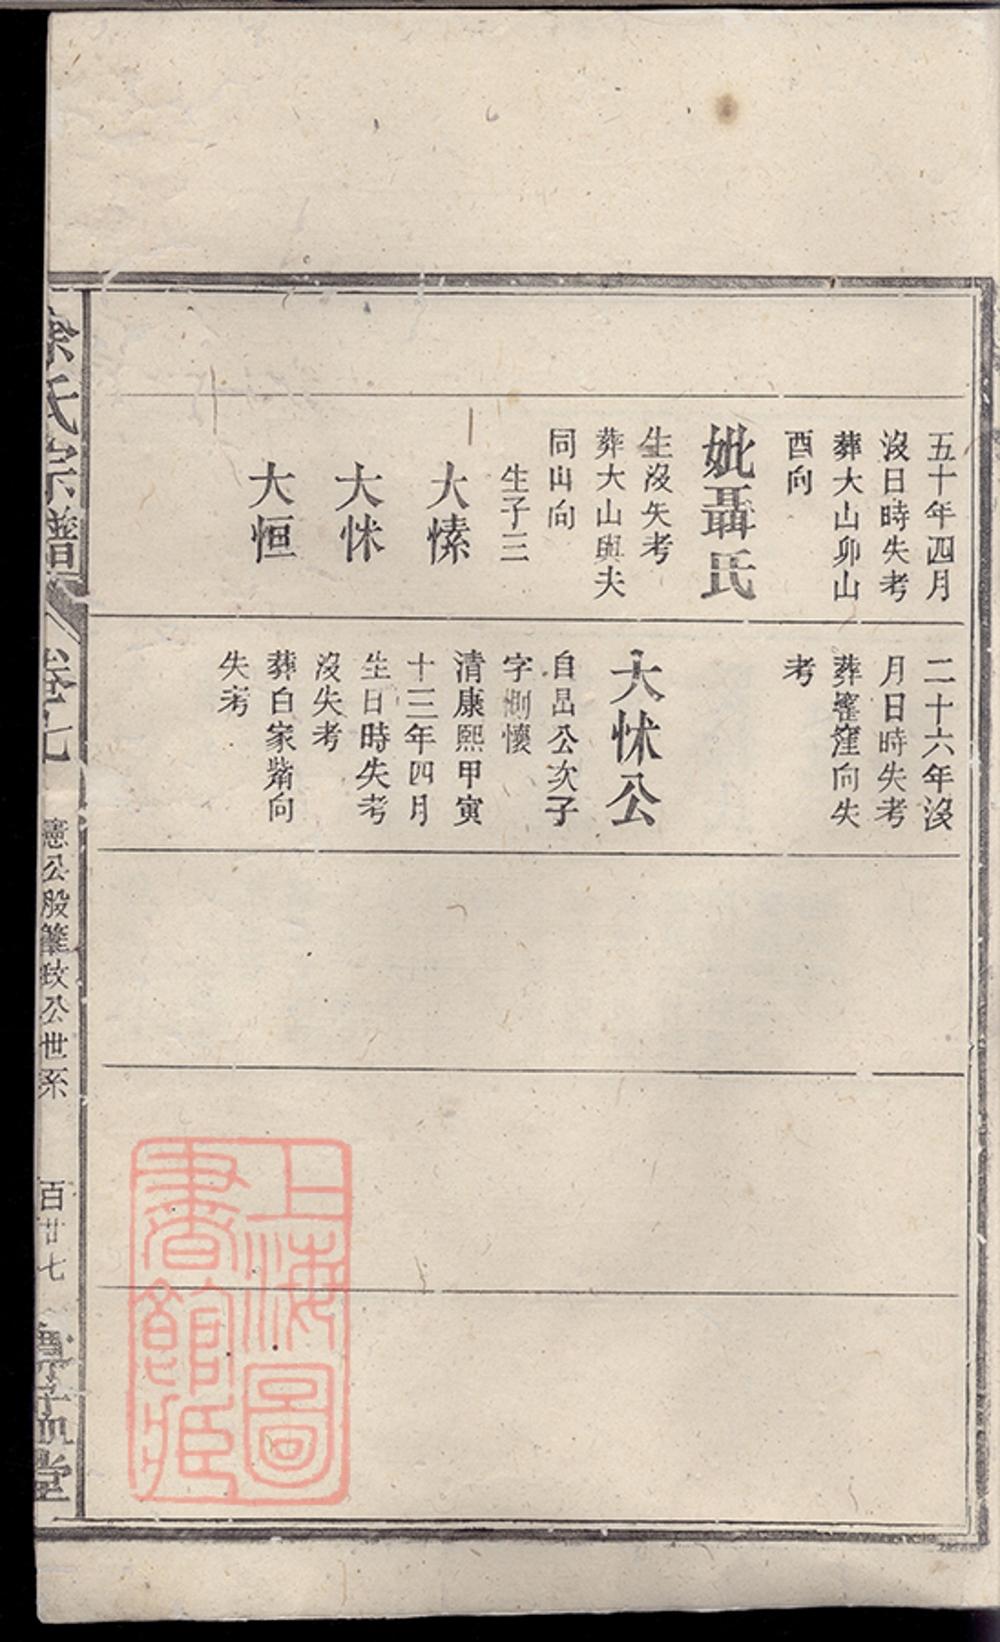 五十年四月
沒日時失考
葬大山卯山
酉向
妣聶氏
生沒失考
葬大山與夫
同山向
生子三
大愫
大怵
大恒
二十六年沒
月日時失考
葬窪向失
考
大怵公
自昷公次子
字惻懷
清康熙甲寅
十三年四月
生日時失考
沒失考
葬白家觜向
失考
氏宗譜
卷七
憲公股肇政公世系
百廿七
堂
上海圖
書館藏